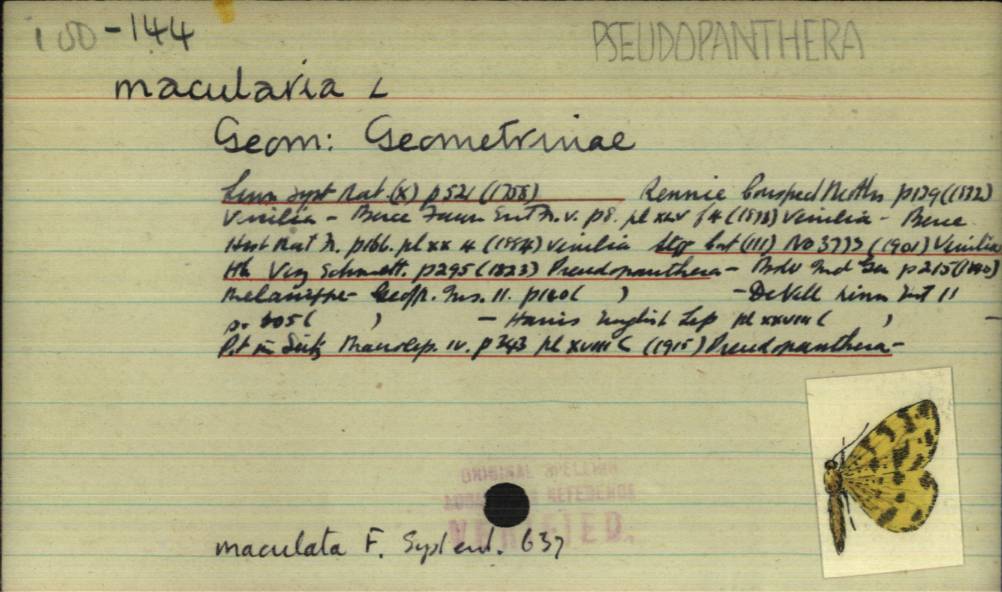 100-144
PSEUDOPANTHERA
macularia L
Geom: Geometrinae
Linn Syst Nat (X) p521 (1758) Rennie Consped Moths p129 (1832)
Venilia - Berce Faun Ent Fr. V. p8. pl xlv f4 (1873) Venilia - Berce
Hist Nat Fr. p166. pl xx 4 (1884) Venilia Stgr Cat (III) No 3777 (1901) Venilia
Hb Verz Schmett. p295 (1823) Pseudopanthera - Bdv Ind Gen p215 (1840)
Melanippe - Geoffr. Ins. II. p140 ( ) - De Vill Linn Ent II
p. 305 ( ) - Harris English Lep pl xxviii ( ) -
Prt in Seitz Macrolep. IV. p343 pl xviii c (1915) Pseudopanthera -
ORIGINAL SPELLING
AND REFERENCE
VERIFIED.
maculata F. Syst ent. 637